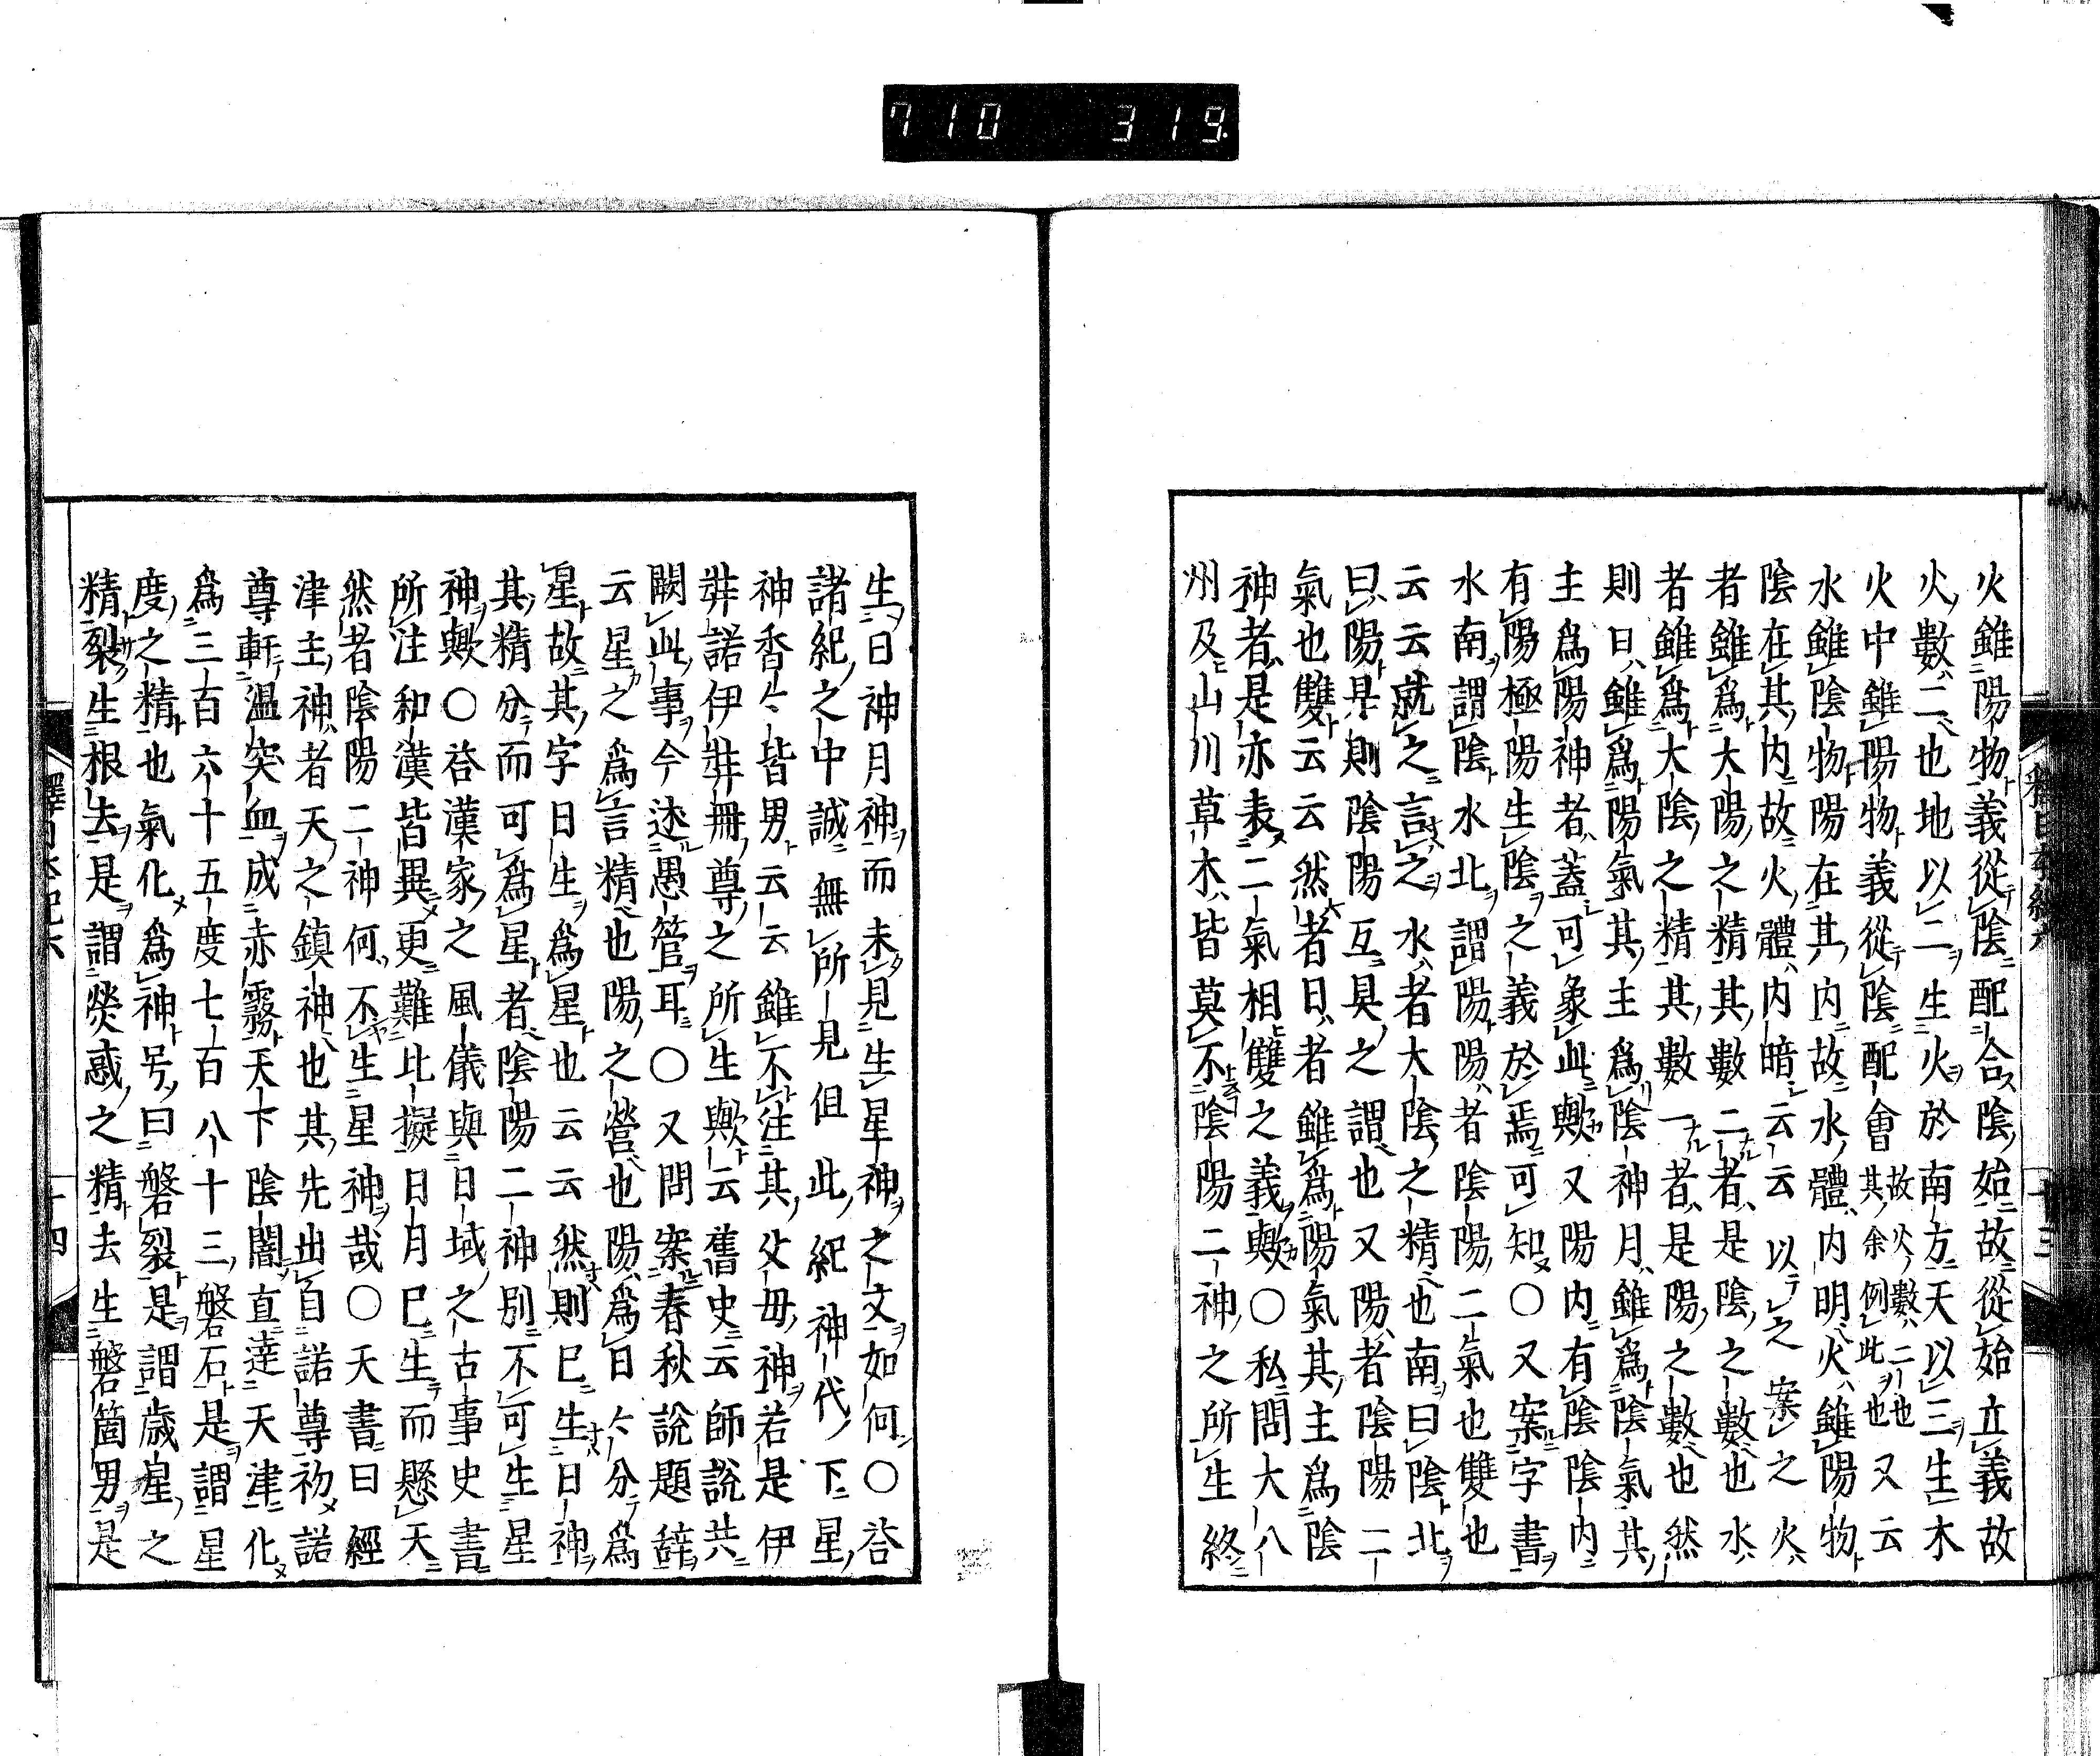 710 319
火雖陽物義從陰配合陰始故從始立義故
火數二也地以二生火於南方天以三生木
火中雖陽物義從陰配會故火數二也其余例此也又云
水雖陰物陽在其内故水體内明火雖陽物
陰在其内故火體内暗云云以之案之火
者雖爲大陽之精其數二者是陰之數也水
者雖爲大陰之精其數一者是陽之數也然
則日雖爲陽氣其主爲陰神月雖爲陰氣其
主爲陽神者蓋可象此歟又陽内有陰陰内
有陽極陽生陰之義於焉可知〇又案字書
水南謂陰水北謂陽陽者陰陽二氣也雙也
云云就之言之水者大陰之精也南曰陰北
曰陽是則陰陽互具之謂也又陽者陰陽二
氣也雙云云然者日者雖爲陽氣其主爲陰
神者是亦表二氣相雙之義歟〇私問大八
州及山川草木皆莫不陰陽二神之所生終
生日神月神而未見生星神之文如何〇答
諸紀之中誠無所見但此紀神代下星
神香々皆男云云雖不注其父母神若是伊
弉諾伊弉冊尊之所生歟云舊史云師說共
闕此事今述愚管耳〇又問案春秋說題辞
云星之爲言精也陽之營也陽爲日々分爲
星故其字日生爲星也云云然則巳生日神
其精分而可爲星者陰陽二神別不可生星
神歟〇答漢家之風儀與日域之古事史書
所注和漢皆異更難比擬日月巳生而懸天
然者陰陽二神何不生星神哉〇天書曰經
津主神者天之鎮神也其先出自諾尊初諾
尊軒溫突血成赤霧天下陰闇直達天津化
爲三百六十五度七百八十三磐石是謂星
度之精也氣化爲神号曰磐裂是謂歳星之
精裂生根去是謂熒惑之精去生磐箇男是
釋日本紀六
十四